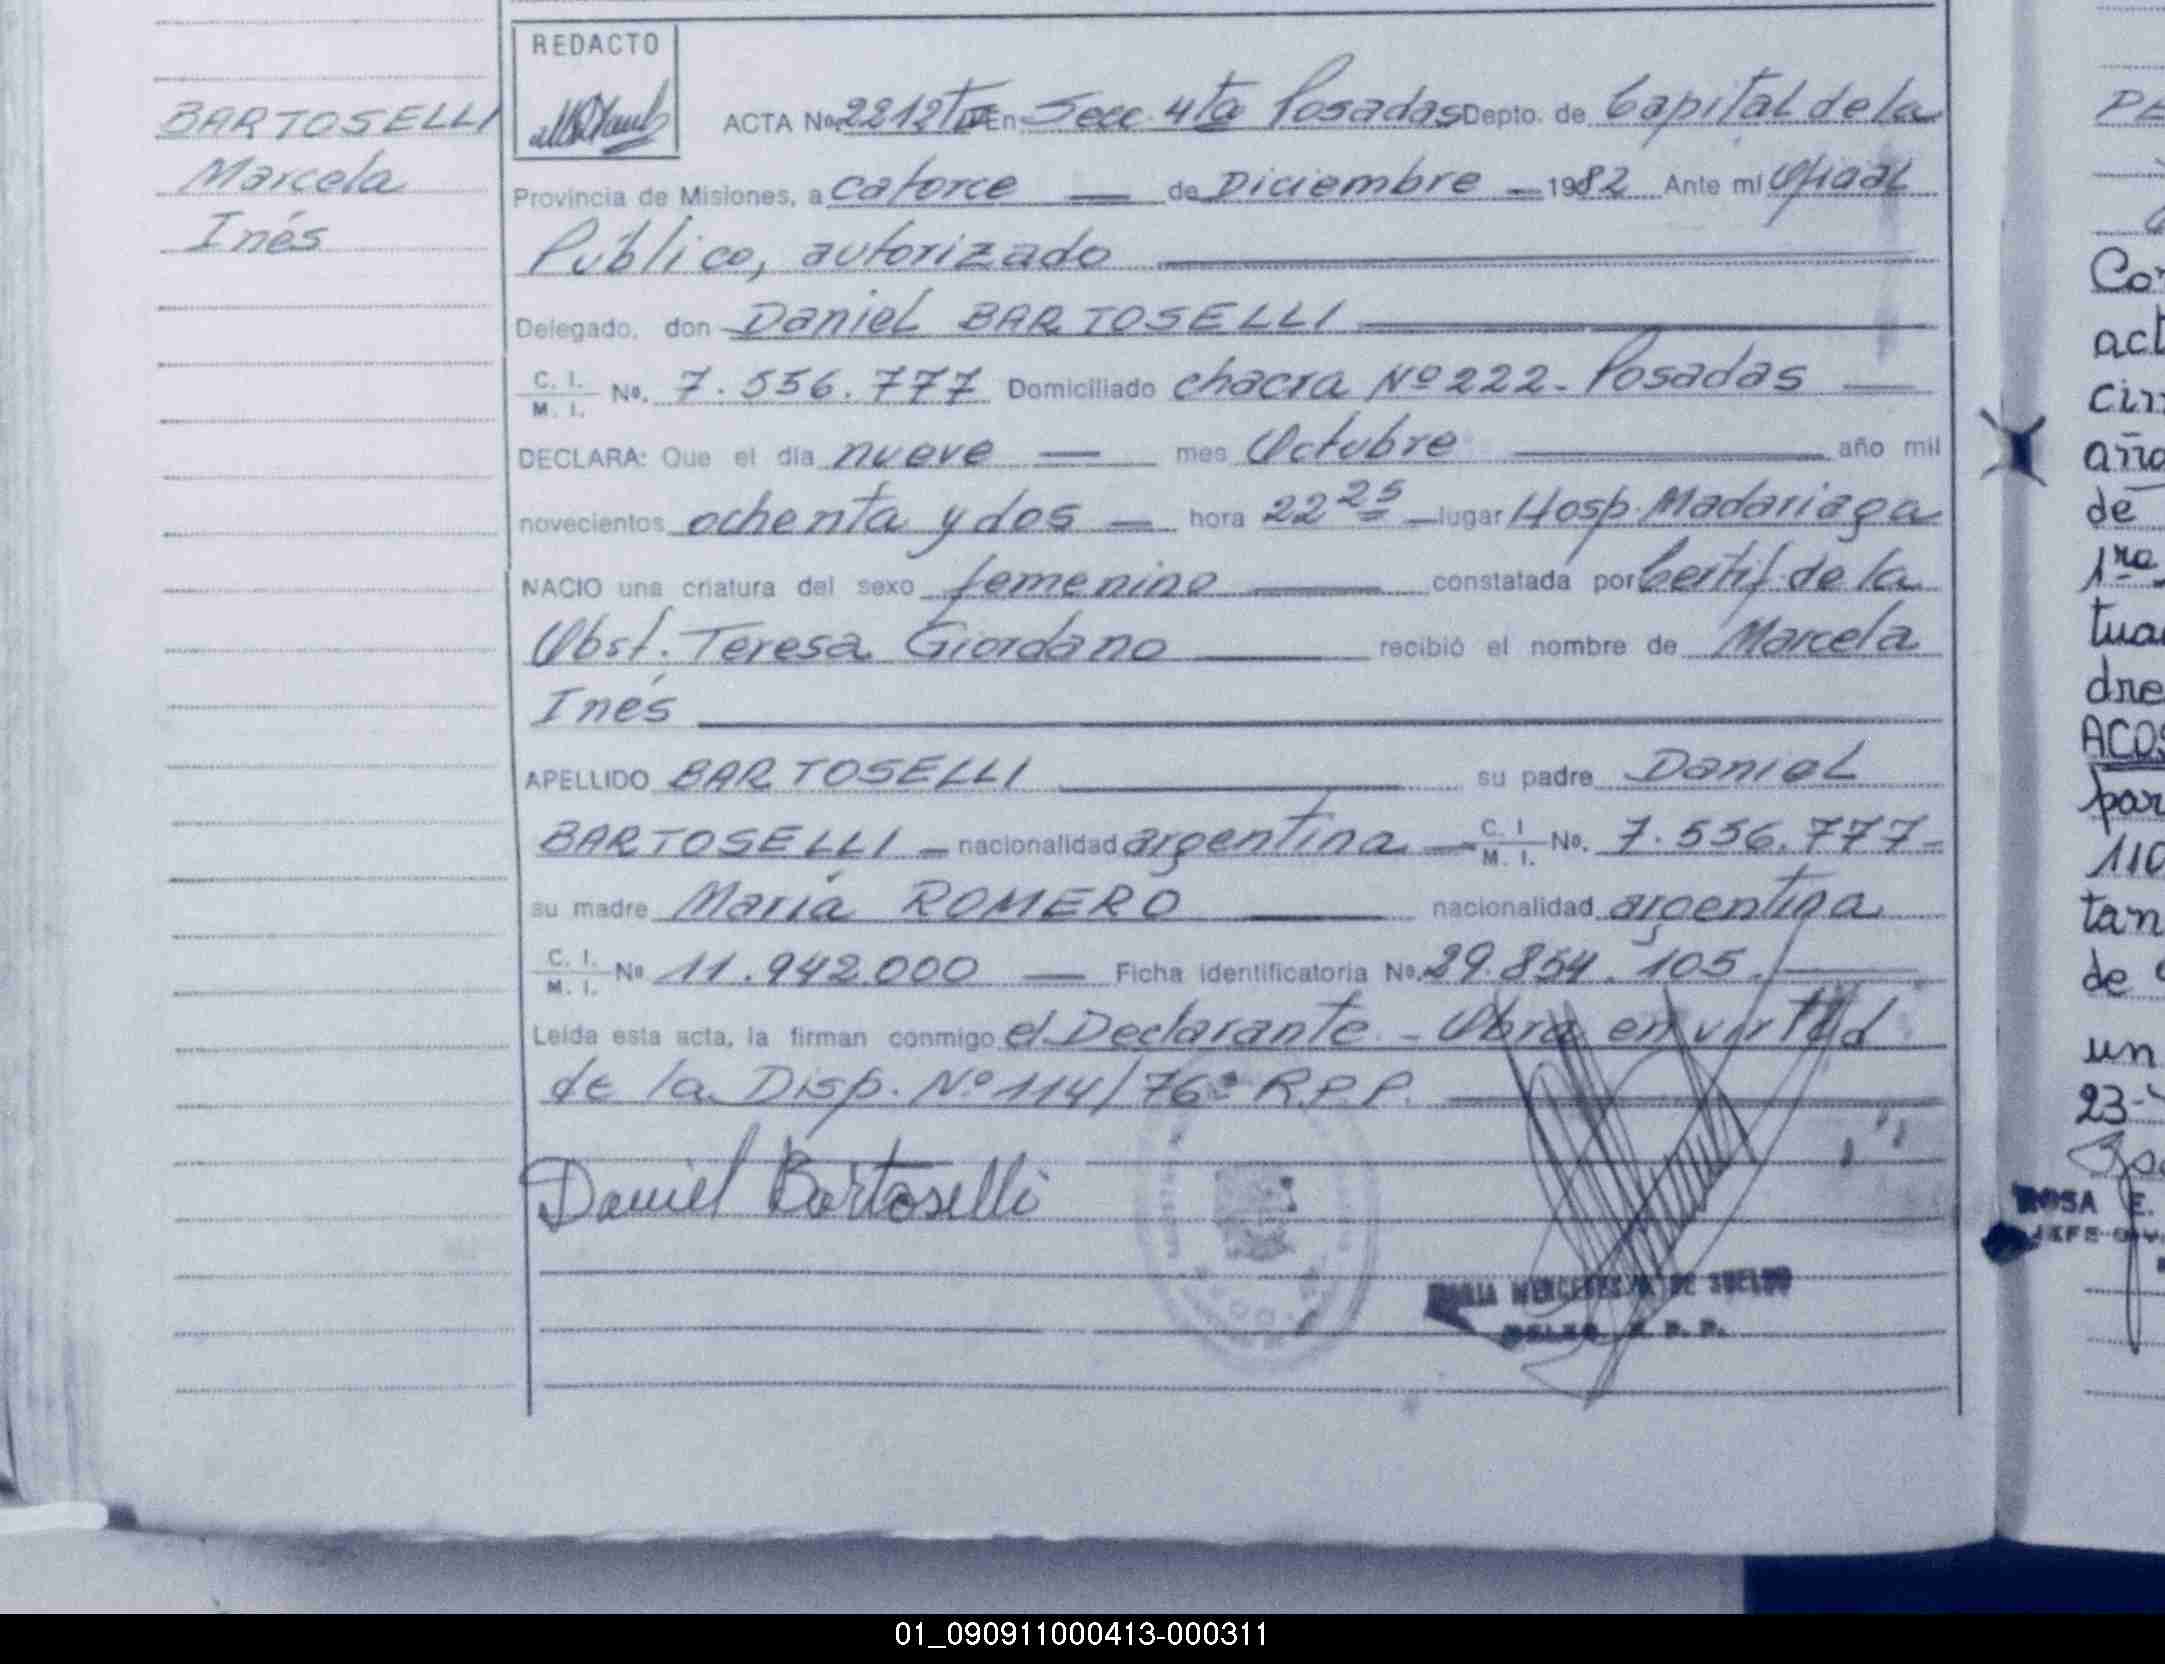 BARTOSELLI
Marcela
Inés
REDACTO
ACTA No. 2212 Tº En Secc. 4ta Posadas Depto. de Capital de la
Provincia de Misiones, a catorce — de Diciembre — 1982 Ante mi Oficial
Público, autorizado
Delegado, don Daniel BARTOSELLI
C. I. / M. I. No. 7.556.777 Domiciliado chacra Nº 222 - Posadas —
DECLARA: Que el día nueve — mes Octubre — año mil
novecientos ochenta y dos — hora 22 25 — lugar Hosp. Madariaga
NACIO una criatura del sexo femenino — constatada por Certif. de la
Obst. Teresa Giordano — recibió el nombre de Marcela
Inés
APELLIDO BARTOSELLI — su padre Daniel
BARTOSELLI — nacionalidad argentina — C. I / M. I. No. 7.556.777 -
su madre María ROMERO — nacionalidad argentina
C. I. / M. I. No 11.942.000 — Ficha identificatoria No. 29.854.105. —
Leida esta acta, la firman conmigo el Declarante. - Obra en virtud
de la Disp. Nº 114/76 R.P.P. —
Daniel Bartoselli
MARIA MERCEDES DE SUELDO
R. P. P.
Co
act
año
de
1ra
tua
dre
ACOS
par
110
tan
de
un
23-
ROSA E.
JEFE
01_090911000413-000311